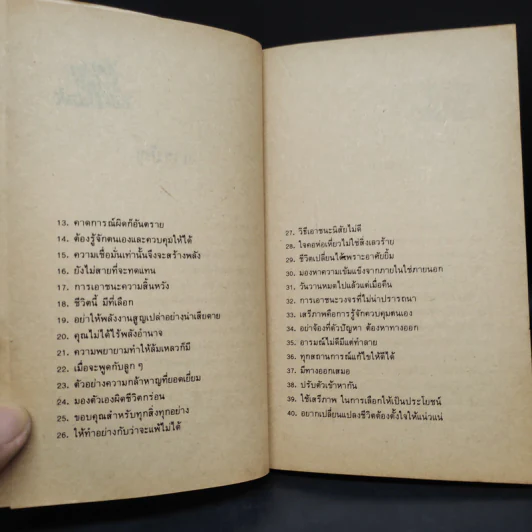 13. คาดการณ์ผิดก็อันตราย
14. ต้องรู้จักตนเองและควบคุมให้ได้
15. ความเชื่อมั่นเท่านั้นจึงจะสร้างพลัง
16. ยังไม่สายที่จะทดแทน
17. การเอาชนะความสิ้นหวัง
18. ชีวิตนี้ มีที่เลือก
19. อย่าให้พลังงานสูญเปล่าอย่างน่าเสียดาย
20. คุณไม่ได้ไร้พลังอำนาจ
21. ความพยายามทำให้ล้มเหลวก็มี
22. เมื่อจะพูดกับลูก ๆ
23. ตัวอย่างความกล้าหาญที่ยอดเยี่ยม
24. มองตัวเองผิดชีวิตกร่อน
25. ขอบคุณสำหรับทุกสิ่งทุกอย่าง
26. ให้ทำอย่างกับว่าจะแพ้ไม่ได้
27. วิธีเอาชนะนิสัยไม่ดี
28. ใจคอห่อเหี่ยวไม่ใช่สิ่งเลวร้าย
29. ชีวิตเปลี่ยนได้เพราะอาศัยยิ้ม
30. มองหาความเข้มแข็งจากภายในใช่ภายนอก
31. วันวานหมดไปแล้วแต่เมื่อคืน
32. การเอาชนะวงจรที่ไม่น่าปรารถนา
33. เสรีภาพคือการรู้จักควบคุมตนเอง
34. อย่าจ้องที่ตัวปัญหา ต้องหาทางออก
35. อารมณ์ไม่ดีมีแต่ทำลาย
36. ทุกสถานการณ์แก้ไขให้ดีได้
37. มีทางออกเสมอ
38. ปรับตัวเข้าหากัน
39. ใช้เสรีภาพ ในการเลือกให้เป็นประโยชน์
40. อยากเปลี่ยนแปลงชีวิตต้องตั้งใจให้แน่วแน่